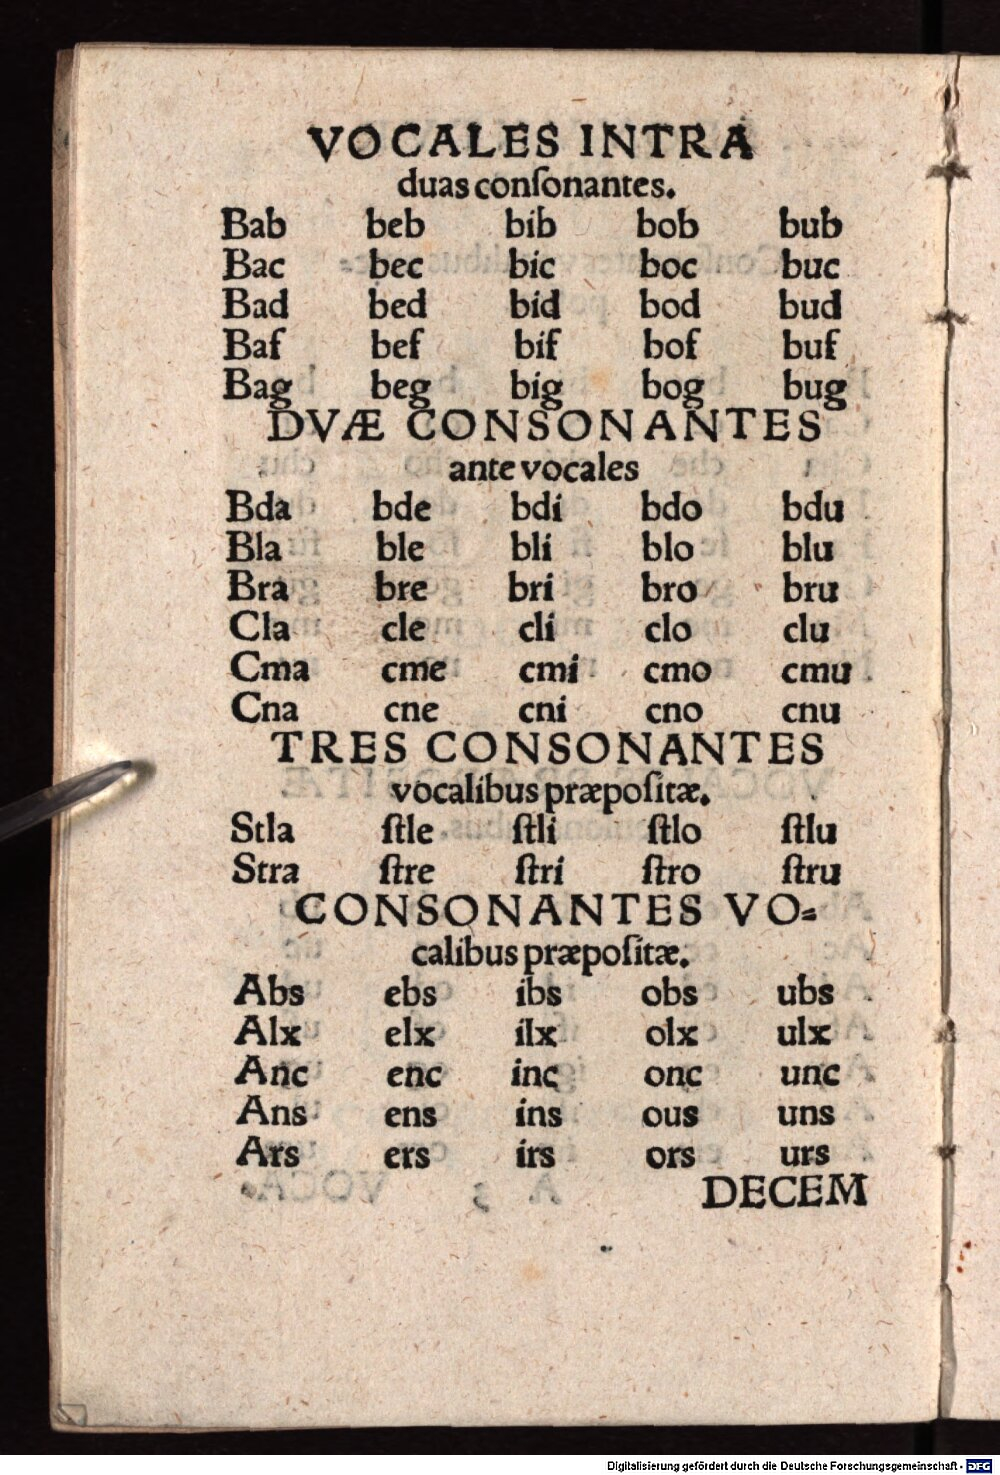 VOCALES INTRA
duas conſonantes.
Bab beb bib bob bub
Bac bec bic boc buc
Bad bed bid bod bud
Baf bef bif bof buf
Bag beg big bog bug
DVÆ CONSONANTES
ante vocales
Bda bde bdi bdo bdu
Bla ble bli blo blu
Bra bre bri bro bru
Cla cle cli clo clu
Cma cme cmi cmo cmu
Cna cne cni cno cnu
TRES CONSONANTES
vocalibus præpoſitæ.
Stla ſtle ſtli ſtlo ſtlu
Stra ſtre ſtri ſtro ſtru
CONSONANTES VO=
calibus præpoſitæ.
Abs ebs ibs obs ubs
Alx elx ilx olx ulx
Anc enc inc onc unc
Ans ens ins ous uns
Ars ers irs ors urs
DECEM
Digitalisierung gefördert durch die Deutsche Forschungsgemeinschaft - DFG